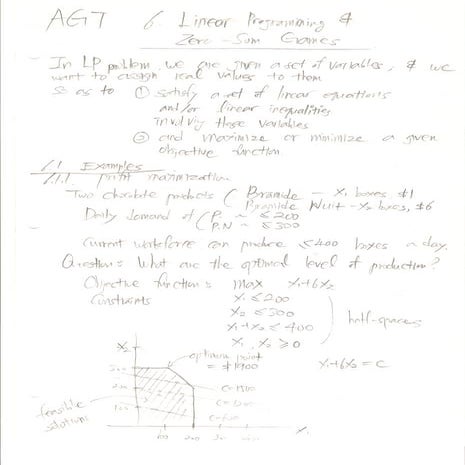 AGT 6. Linear Programming &
Zero-Sum Games
In LP problem, we are given a set of variables, & we
want to assign real values to them
so as to ① satisfy a set of linear equations
and/or linear inequalities
involving these variables
② and maximize or minimize a given
objective function.
6.1 Examples
6.1.1 profit maximization.
Two chocolate products ( Pyramide - x₁ boxes $1
Pyramide Nuit - x₂ boxes, $6
Daily demand of ( P. ~ ≤ 200
P.N ~ ≤ 300
Current workforce can produce ≤ 400 boxes a day.
Question: What are the optimal level of production?
Objective function: max x₁+6x₂
Constraints x₁ ≤ 200
x₂ ≤ 300
x₁+x₂ ≤ 400
x₁, x₂ ≥ 0
half-spaces
optimum point
= $1900
x₁+6x₂ = c
x₂
300
200
100
c=1500
c=1200
c=600
feasible
solutions
100 200 300 400
x₁